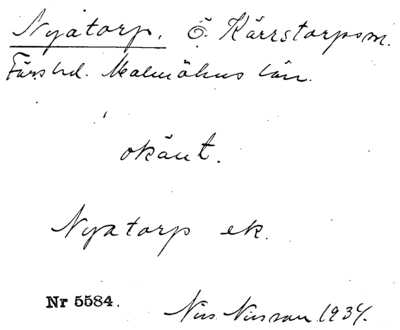 Nyatorp. Ö. Kärrstorpsm.
Färs hd. Malmöhus län.
okänt.
Nyatorp ek.
Nr 5584. Nils Nilsson 1934.